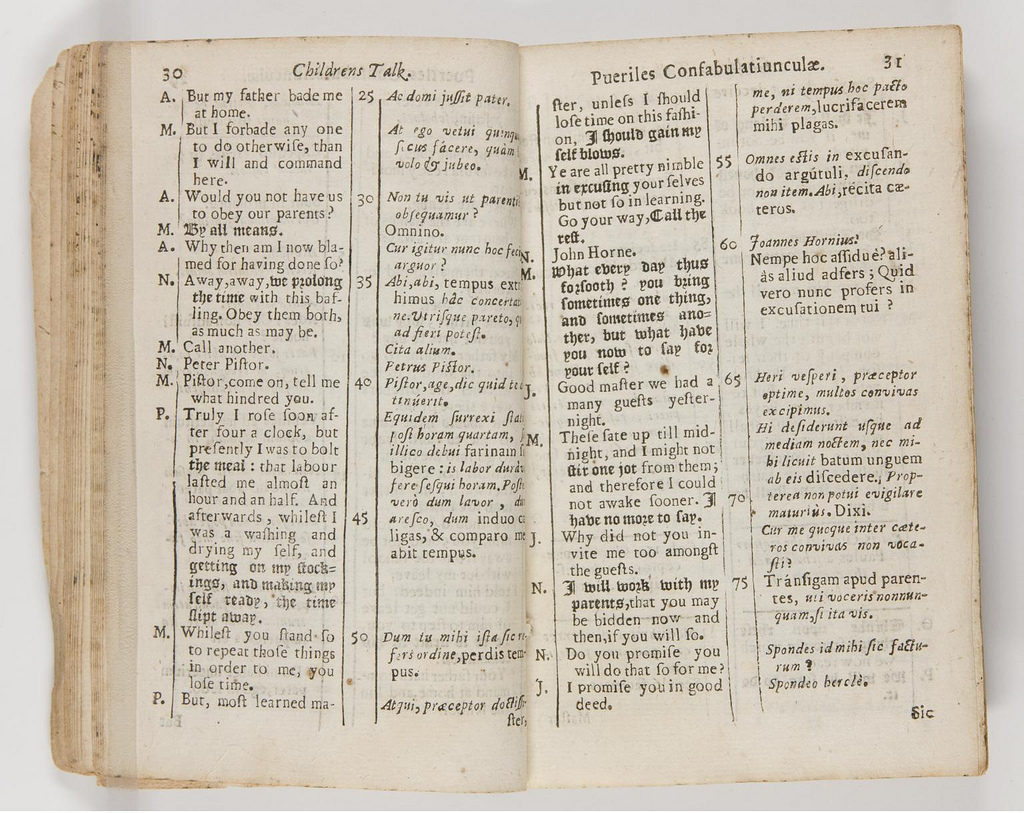 30 Childrens Talk.
A. But my father bade me
at home.
M. But I forbade any one
to do otherwiſe, than
I will and command
here.
A. Would you not have us
to obey our parents?
M. By all means.
A. Why then am I now bla-
med for having done ſo?
N. Away, away, we prolong
the time with this baf-
ling. Obey them both,
as much as may be.
M. Call another.
N. Peter Piſtor.
M. Piſtor, come on, tell me
what hindred you.
P. Truly I roſe ſoon af-
ter four a clock, but
preſently I was to bolt
the meal: that labour
laſted me almoſt an
hour and an half. And
afterwards, whileſt I
was a waſhing and
drying my ſelf, and
getting on my ſtock-
ings, and making my
ſelf ready, the time
ſlipt away.
M. Whileſt you ſtand ſo
to repeat thoſe things
in order to me, you
loſe time.
P. But, moſt learned ma-
25
30
35
40
45
50
Ac domi juſſit pater.
At ego vetui
ſecus facere, quàm
volo & jubeo.
Non tu vis ut
obſequamur?
Omnino.
Cur igitur nunc hoc
arguor?
Abi, abi, tempus
himus hâc
ne. Utriſque pareto,
ad fieri poteſt.
Cita alium.
Petrus Piſtor.
Piſtor, age, dic quid
tinúerit.
Equidem ſurrexi
poſt horam quartam,
illico debui farinam
bigere: is labor
fere ſeſqui horam.
verò dum lavor,
areſco, dum induo
ligas, & comparo me
abit tempus.
Dum tu mihi iſta ſic
fers ordine, perdis tem-
pus.
Atqui, præceptor
ſter,
Pueriles Confabulatiunculæ. 31
ſter, unleſs I ſhould
loſe time on this faſhi-
on, I ſhould gain my
ſelf blows.
M. Ye are all pretty nimble
in excuſing your ſelves
but not ſo in learning.
Go your way, Call the
reſt.
N. John Horne.
M. What every day thus
forſooth? you bring
ſometimes one thing,
and ſometimes ano-
ther, but what have
you now to ſay for
your ſelf?
J. Good maſter we had a
many gueſts yeſter-
night.
M. Theſe ſate up till mid-
night, and I might not
ſtir one jot from them;
and therefore I could
not awake ſooner. I
have no more to ſay.
J. Why did not you in-
vite me too amongſt
the gueſts.
N. I will work with my
parents, that you may
be bidden now and
then, if you will ſo.
N. Do you promiſe you
will do that ſo for me?
J. I promiſe you in good
deed.
55
60
65
70
75
me, ni tempus hoc pacto
perderem, lucrifacerem
mihi plagas.
Omnes eſtis in excuſan-
do argútuli, diſcendo
non item. Abi, recita cæ-
teros.
Joannes Hornius?
Nempe hoc aſſiduè? ali-
às aliud adfers; Quid
vero nunc profers in
excuſationem tui?
Heri veſperi, præceptor
optime, multos convivas
excipimus.
Hi deſiderunt uſque ad
mediam noctem, nec mi-
hi licuit batum unguem
ab eis diſcedere; Prop-
terea non potui evigilare
maturiùs. Dixi.
Cur me quoque inter cæte-
ros convivas non voca-
ſti?
Tranſigam apud paren-
tes, uti voceris nonnun-
quam, ſi ita vis.
Spondes id mihi ſic factu-
rum?
Spondeo herclè.
Sic